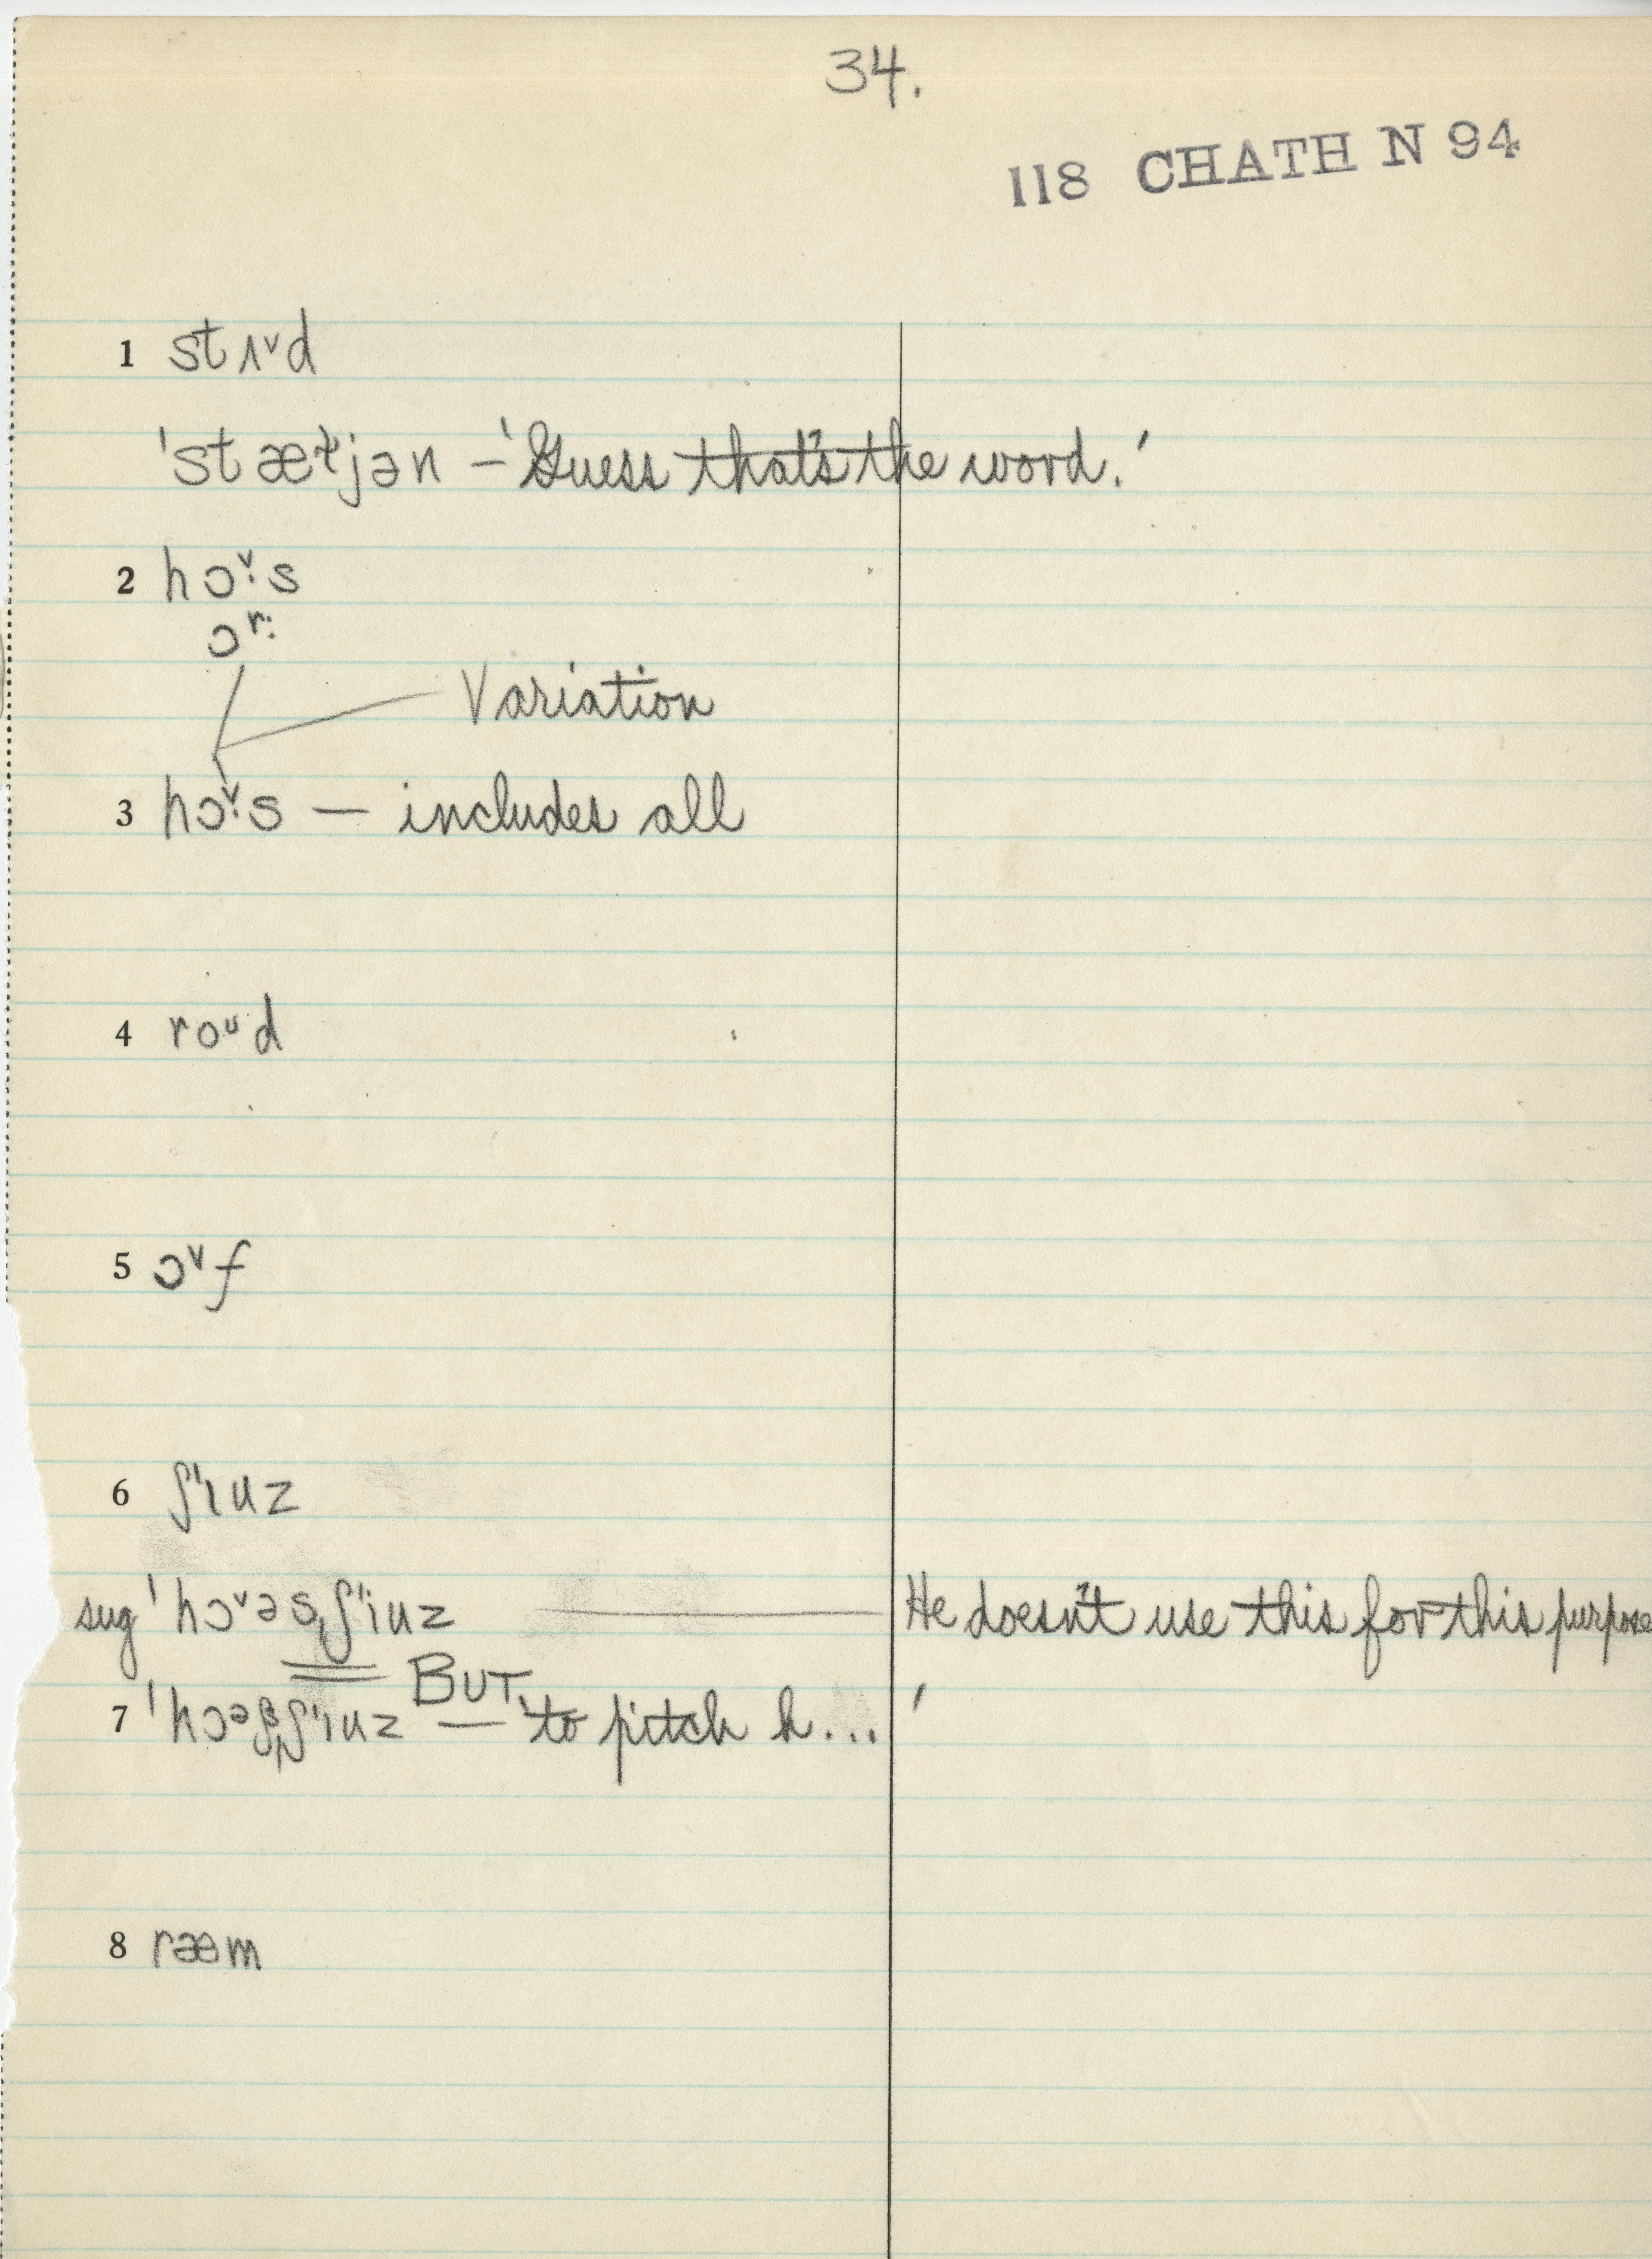 34.
118 CHATH N 94
1 stʌᵛd
'stætjən – 'Guess that's the word.'
2 hɔᵛ:s
ɔʳ:
Variation
3 hɔᵛ:s — includes all
4 roᵘd
5 ɔᵛf
6 ʃ'ɪuz
sug 'hɔᵛəsˌʃ'ɪuz — He doesn't use this for this purpose
BUT
7 'hɔᵊʃˌʃ'ɪuz — 'to pitch h...'
8 ræem